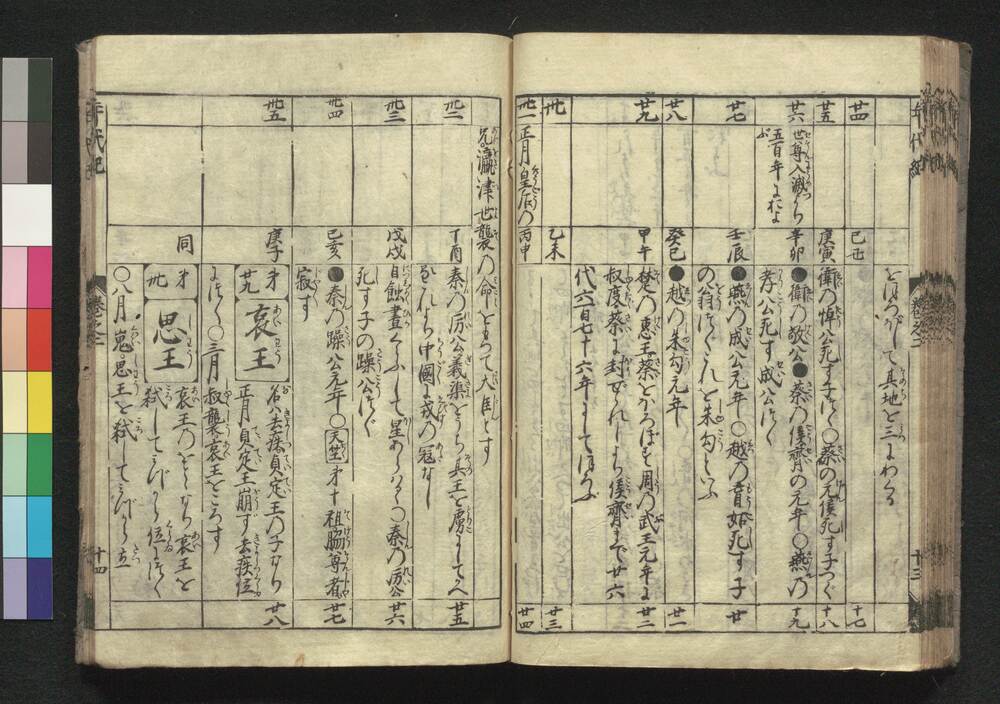 をほろぼして其地を三にわかる
廿四
己丑
十七
廿五
庚寅
衛の悼公死す子つぐ〇蔡の元侯死す子つぐ
十八
廿六
世尊入滅より
五百年におよぶ
辛卯
●衛の敬公●蔡の侯齊の元年〇燕の
孝公死す成公つぐ
十九
廿七
壬辰
●燕の成公元年〇越の鹿郢死す子
の翁つぐこれを朱勾といふ
廿
廿八
癸巳
●越の朱勾元年
廿一
廿九
甲午
楚の惠王蔡をほろぼす周の武王元年に
叔度蔡に封ぜられしより侯齊まで廿六
代六百七十六年にしてほろぶ
廿二
卅
乙未
廿三
卅一
正月皇后の
丙申
廿四
兄瀛津世襲の命をもつて大臣とす
卅二
丁酉
秦の厉公義渠をうち其王を虜にしてかへ
るこれより中國に戎の冠なし
廿五
卅三
戊戌
日蝕晝くらふして星あらはる〇秦の厉公
死す子の躁公つぐ
廿六
卅四
己亥
●秦の躁公元年〇天竺才十祖脇尊者
寂す
廿七
卅五
庚子
才廿九
哀王
名ハ去疾貞定王の子なり
正月貞定王崩ず去疾位
につく〇三月叔襲哀王をころす
廿八
同
才卅
思王
哀王のをとなり哀王を
弑してみづから位につく
〇八月嵬思王を弑してみづから立
年代記
卷之二
十三
年代記
卷之二
十四